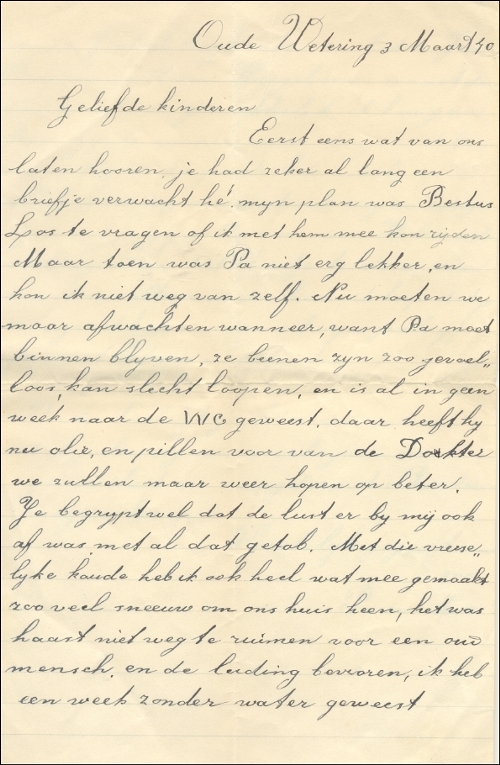 Oude Wetering 3 Maart 40
Geliefde kinderen
Eerst eens wat van ons
laten hooren, je had zeker al lang een
briefje verwacht hé. myn plan was Bestus
Los te vragen of ik met hem mee kon ryden
Maar toen was Pa niet erg lekker, en
kon ik niet weg van zelf. Nu moeten we
maar afwachten wanneer, want Pa moet
binnen blyven, ze beenen zyn zoo gevoel„
loos, kan slecht loopen, en is al in geen
week naar de WC geweest, daar heeft hy
nu olie, en pillen voor van de Dokter
we zullen maar weer hopen op beter.
Je begrypt wel dat de lust er by mij ook
af was met al dat getob. Met die vreese„
lyke koude heb ik ook heel wat mee gemaakt
zoo veel sneeuw om ons huis heen, het was
haast niet weg te ruimen voor een oud
mensch. en de leiding bevroren, ik heb
een week zonder water geweest